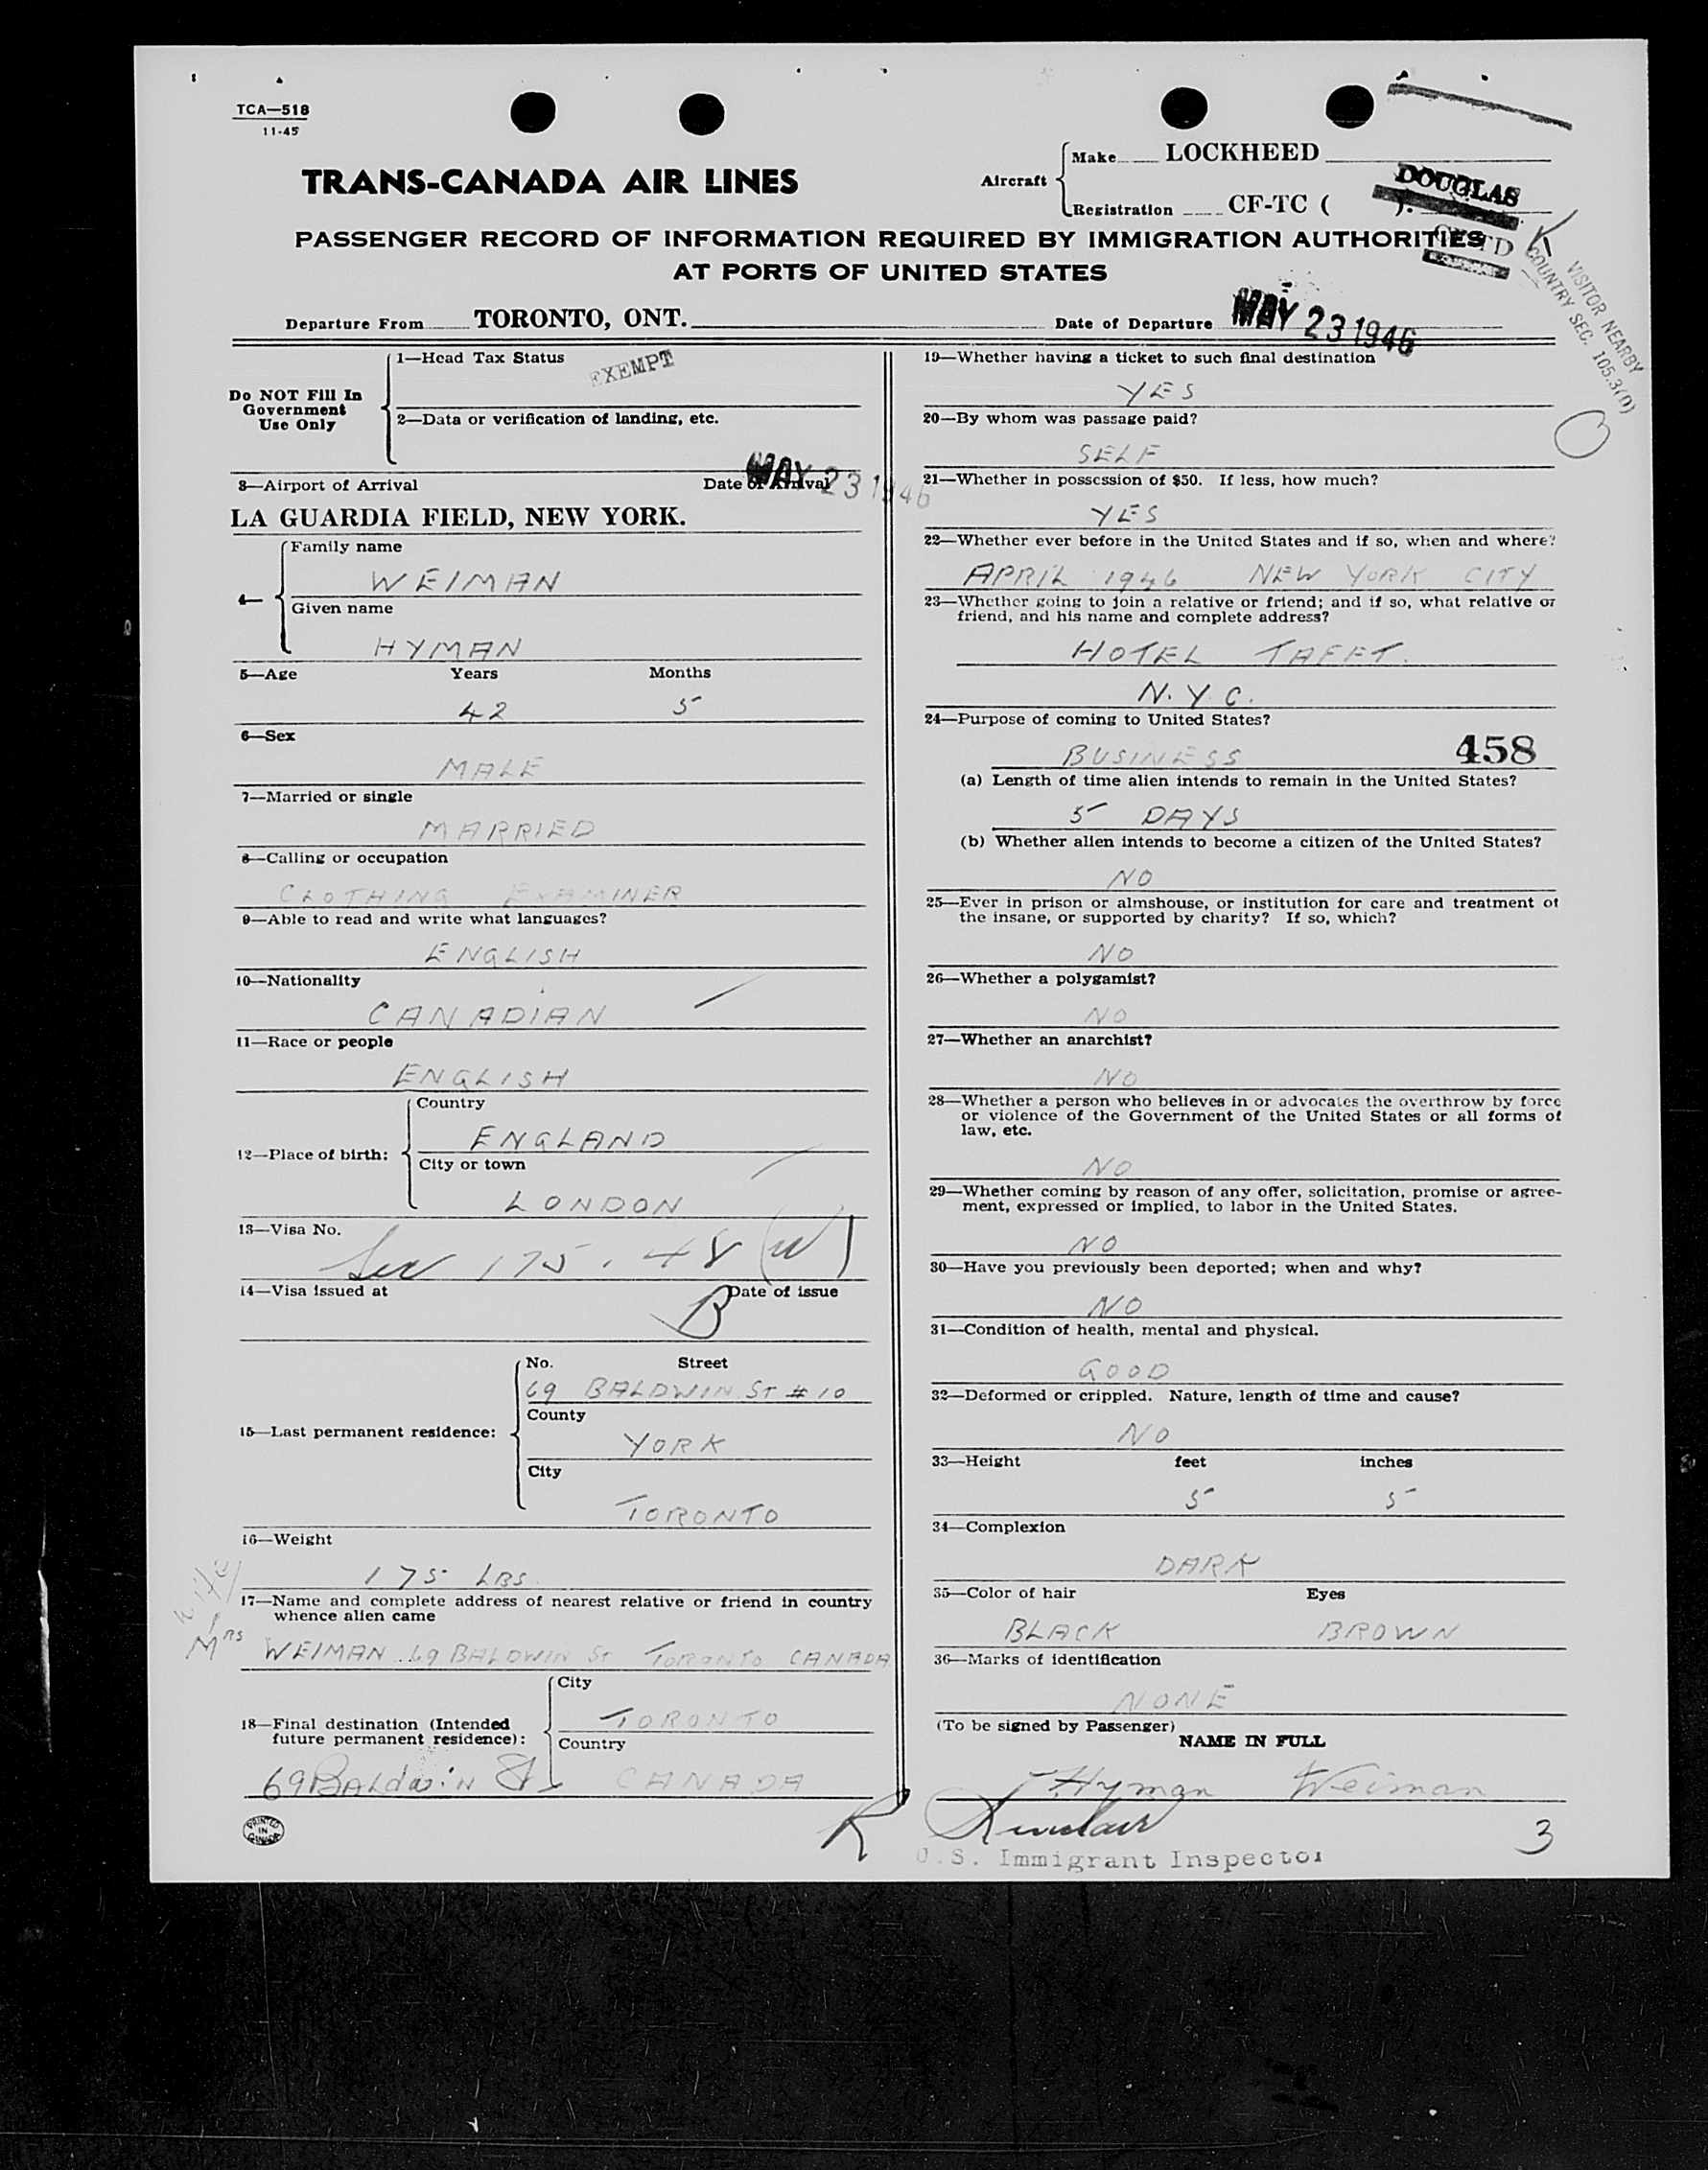 TCA—518
11-45
TRANS-CANADA AIR LINES
Aircraft
Make LOCKHEED
DOUGLAS
Registration CF-TC ( ).
PASSENGER RECORD OF INFORMATION REQUIRED BY IMMIGRATION AUTHORITIES
AT PORTS OF UNITED STATES
VISITOR NEARBY
COUNTRY SEC. 105.3(1)
Departure From TORONTO, ONT.
Date of Departure MAY 23 1946
Do NOT Fill In
Government
Use Only
1—Head Tax Status
EXEMPT
2—Data or verification of landing, etc.
3—Airport of Arrival
Date of Arrival MAY 23 1946
LA GUARDIA FIELD, NEW YORK.
4—
Family name
WEIMAN
Given name
HYMAN
5—Age Years Months
42 5
6—Sex
MALE
7—Married or single
MARRIED
8—Calling or occupation
CLOTHING EXAMINER
9—Able to read and write what languages?
ENGLISH
10—Nationality
CANADIAN
11—Race or people
ENGLISH
12—Place of birth:
Country
ENGLAND
City or town
LONDON
13—Visa No.
Sec 175.48 (W)
14—Visa issued at Date of issue
B
15—Last permanent residence:
No. Street
69 BALDWIN ST #10
County
YORK
City
TORONTO
16—Weight
175 LBS
wife
17—Name and complete address of nearest relative or friend in country
whence alien came
MRS WEIMAN 69 BALDWIN ST TORONTO CANADA
18—Final destination (Intended
future permanent residence):
City
TORONTO
Country
69 BALdwiN St CANADA
PRINTED
IN
CANADA
19—Whether having a ticket to such final destination
YES
20—By whom was passage paid?
SELF
21—Whether in possession of $50. If less, how much?
YES
22—Whether ever before in the United States and if so, when and where?
APRIL 1946 NEW YORK CITY
23—Whether going to join a relative or friend; and if so, what relative or
friend, and his name and complete address?
HOTEL TAFFT.
N.Y.C.
24—Purpose of coming to United States?
BUSINESS 458
(a) Length of time alien intends to remain in the United States?
5 DAYS
(b) Whether alien intends to become a citizen of the United States?
NO
25—Ever in prison or almshouse, or institution for care and treatment of
the insane, or supported by charity? If so, which?
NO
26—Whether a polygamist?
NO
27—Whether an anarchist?
NO
28—Whether a person who believes in or advocates the overthrow by force
or violence of the Government of the United States or all forms of
law, etc.
NO
29—Whether coming by reason of any offer, solicitation, promise or agree-
ment, expressed or implied, to labor in the United States.
NO
30—Have you previously been deported; when and why?
NO
31—Condition of health, mental and physical.
GOOD
32—Deformed or crippled. Nature, length of time and cause?
NO
33—Height feet inches
5 5
34—Complexion
DARK
35—Color of hair Eyes
BLACK BROWN
36—Marks of identification
NONE
(To be signed by Passenger)
NAME IN FULL
Hyman Weiman
R
U.S. Immigrant Inspector
3